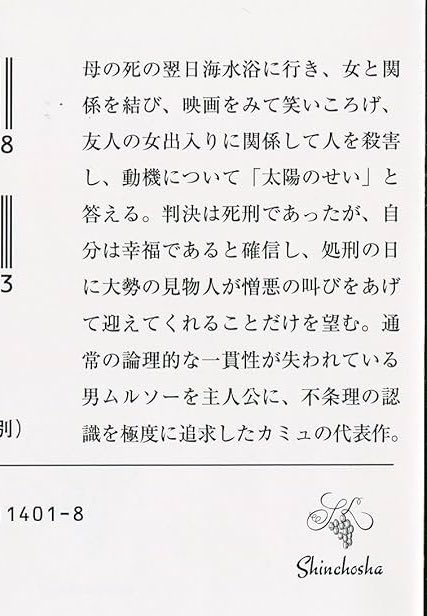 母の死の翌日海水浴に行き、女と関
係を結び、映画をみて笑いころげ、
友人の女出入りに関係して人を殺害
し、動機について「太陽のせい」と
答える。判決は死刑であったが、自
分は幸福であると確信し、処刑の日
に大勢の見物人が憎悪の叫びをあげ
て迎えてくれることだけを望む。通
常の論理的な一貫性が失われている
男ムルソーを主人公に、不条理の認
識を極度に追求したカミュの代表作。
8
3
別）
1401-8
Shinchosha